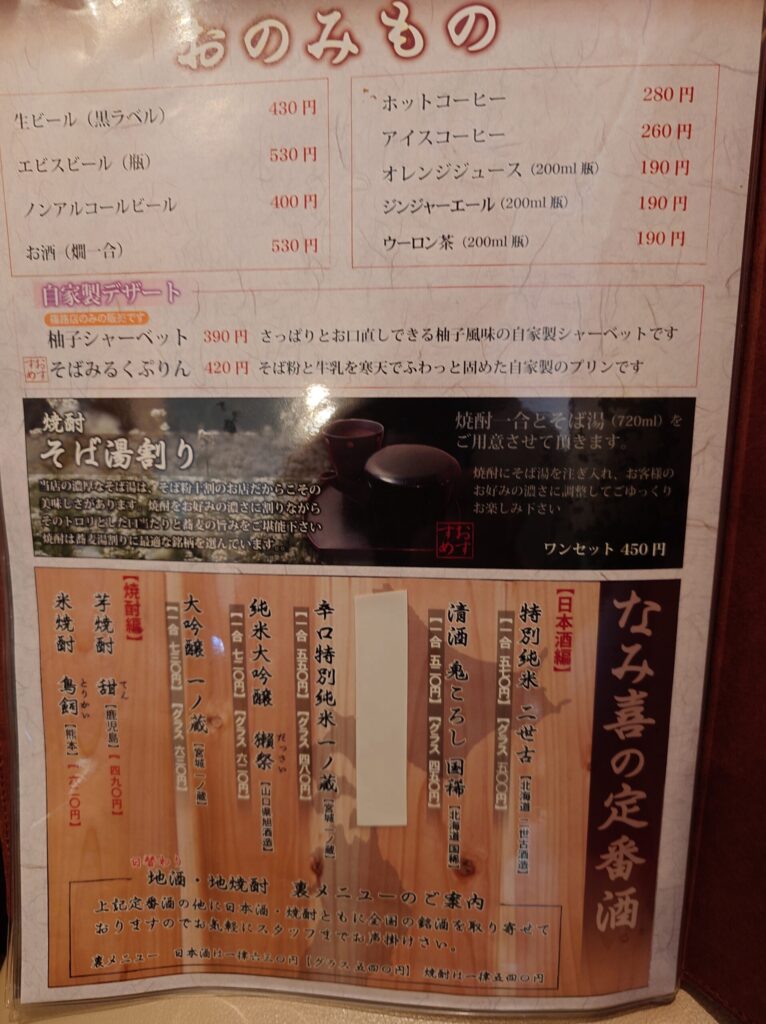 おのみもの
生ビール（黒ラベル） 430円
エビスビール（瓶） 530円
ノンアルコールビール 400円
お酒（燗一合） 530円
ホットコーヒー 280円
アイスコーヒー 260円
オレンジジュース（200ml瓶） 190円
ジンジャーエール（200ml瓶） 190円
ウーロン茶（200ml瓶） 190円
自家製デザート
篠路店のみの販売です
柚子シャーベット 390円 さっぱりとお口直しできる柚子風味の自家製シャーベットです
おすすめ そばみるくぷりん 420円 そば粉と牛乳を寒天でふわっと固めた自家製のプリンです
焼酎
そば湯割り
当店の濃厚なそば湯は、そば粉十割のお店だからこその
美味しさがあります。焼酎をお好みの濃さに割りながら
そのトロリとした口当たりと蕎麦の旨みをご堪能下さい
焼酎は蕎麦湯割りに最適な銘柄を選んでいます。
焼酎一合とそば湯（720ml）を
ご用意させて頂きます。
焼酎にそば湯を注ぎ入れ、お客様の
お好みの濃さに調整してごゆっくり
お楽しみ下さい
おすすめ
ワンセット 450円
なみ喜の定番酒
【日本酒編】
特別純米 二世古【北海道 二世古酒造】
清酒 鬼ころし 国稀【北海道 国稀】
【一合 五二〇円】【グラス 四五〇円】
辛口特別純米 一ノ蔵【宮城 一ノ蔵】
【一合 五五〇円】【グラス 四八〇円】
純米大吟醸 獺祭【山口県旭酒造】
だっさい
【一合 七二〇円】【グラス 六二〇円】
大吟醸 一ノ蔵【宮城 一ノ蔵】
【一合 七三〇円】【グラス 六三〇円】
【焼酎編】
芋焼酎 甜【鹿児島】【四九〇円】
てん
米焼酎 鳥飼【熊本】
とりかい
日替わり
地酒・地焼酎 裏メニューのご案内
上記定番酒の他に日本酒・焼酎ともに全国の銘酒を取り寄せて
おりますのでお気軽にスタッフまでお声掛けさい。
裏メニュー 日本酒は一律六三〇円【グラス 五四〇円】 焼酎は一律五四〇円